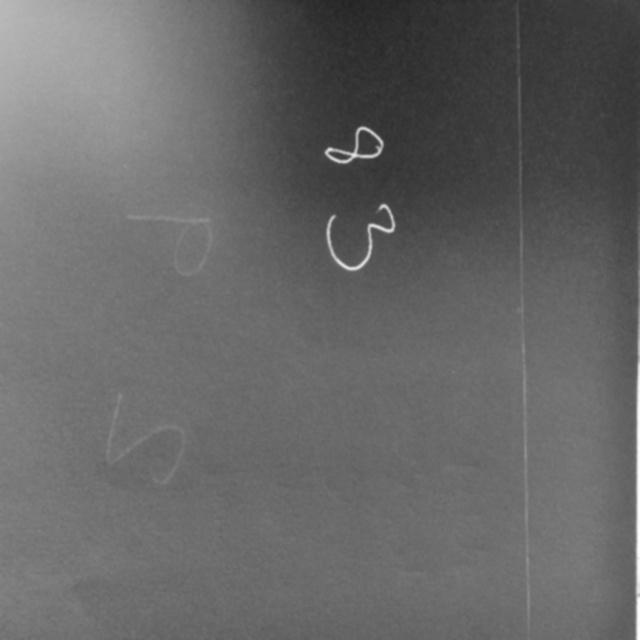 83
P S